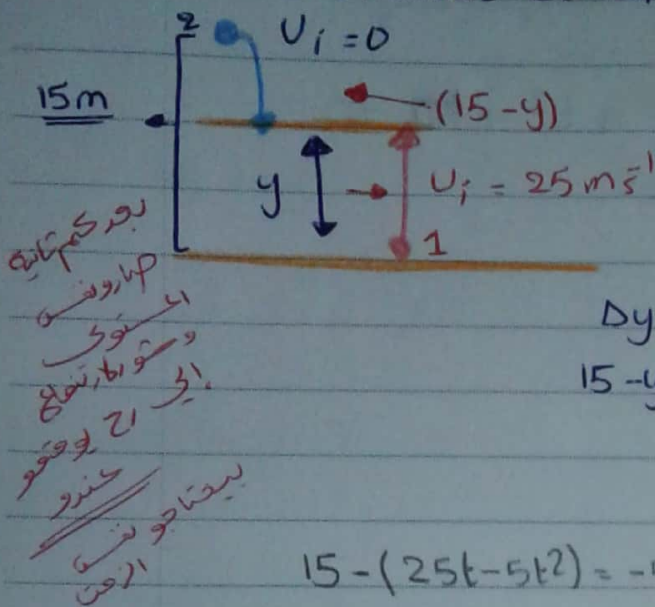 2 Ui = 0
15m
(15-y)
y
Ui = 25 ms⁻¹
1
بعد كم ثانية
صارو نفس
المستوى
وشو الارتفاع
إلي رح يوقفو
عندو
بيحتاجو نفس
الزمن
Δy
15-y
15-(25t-5t²) = -